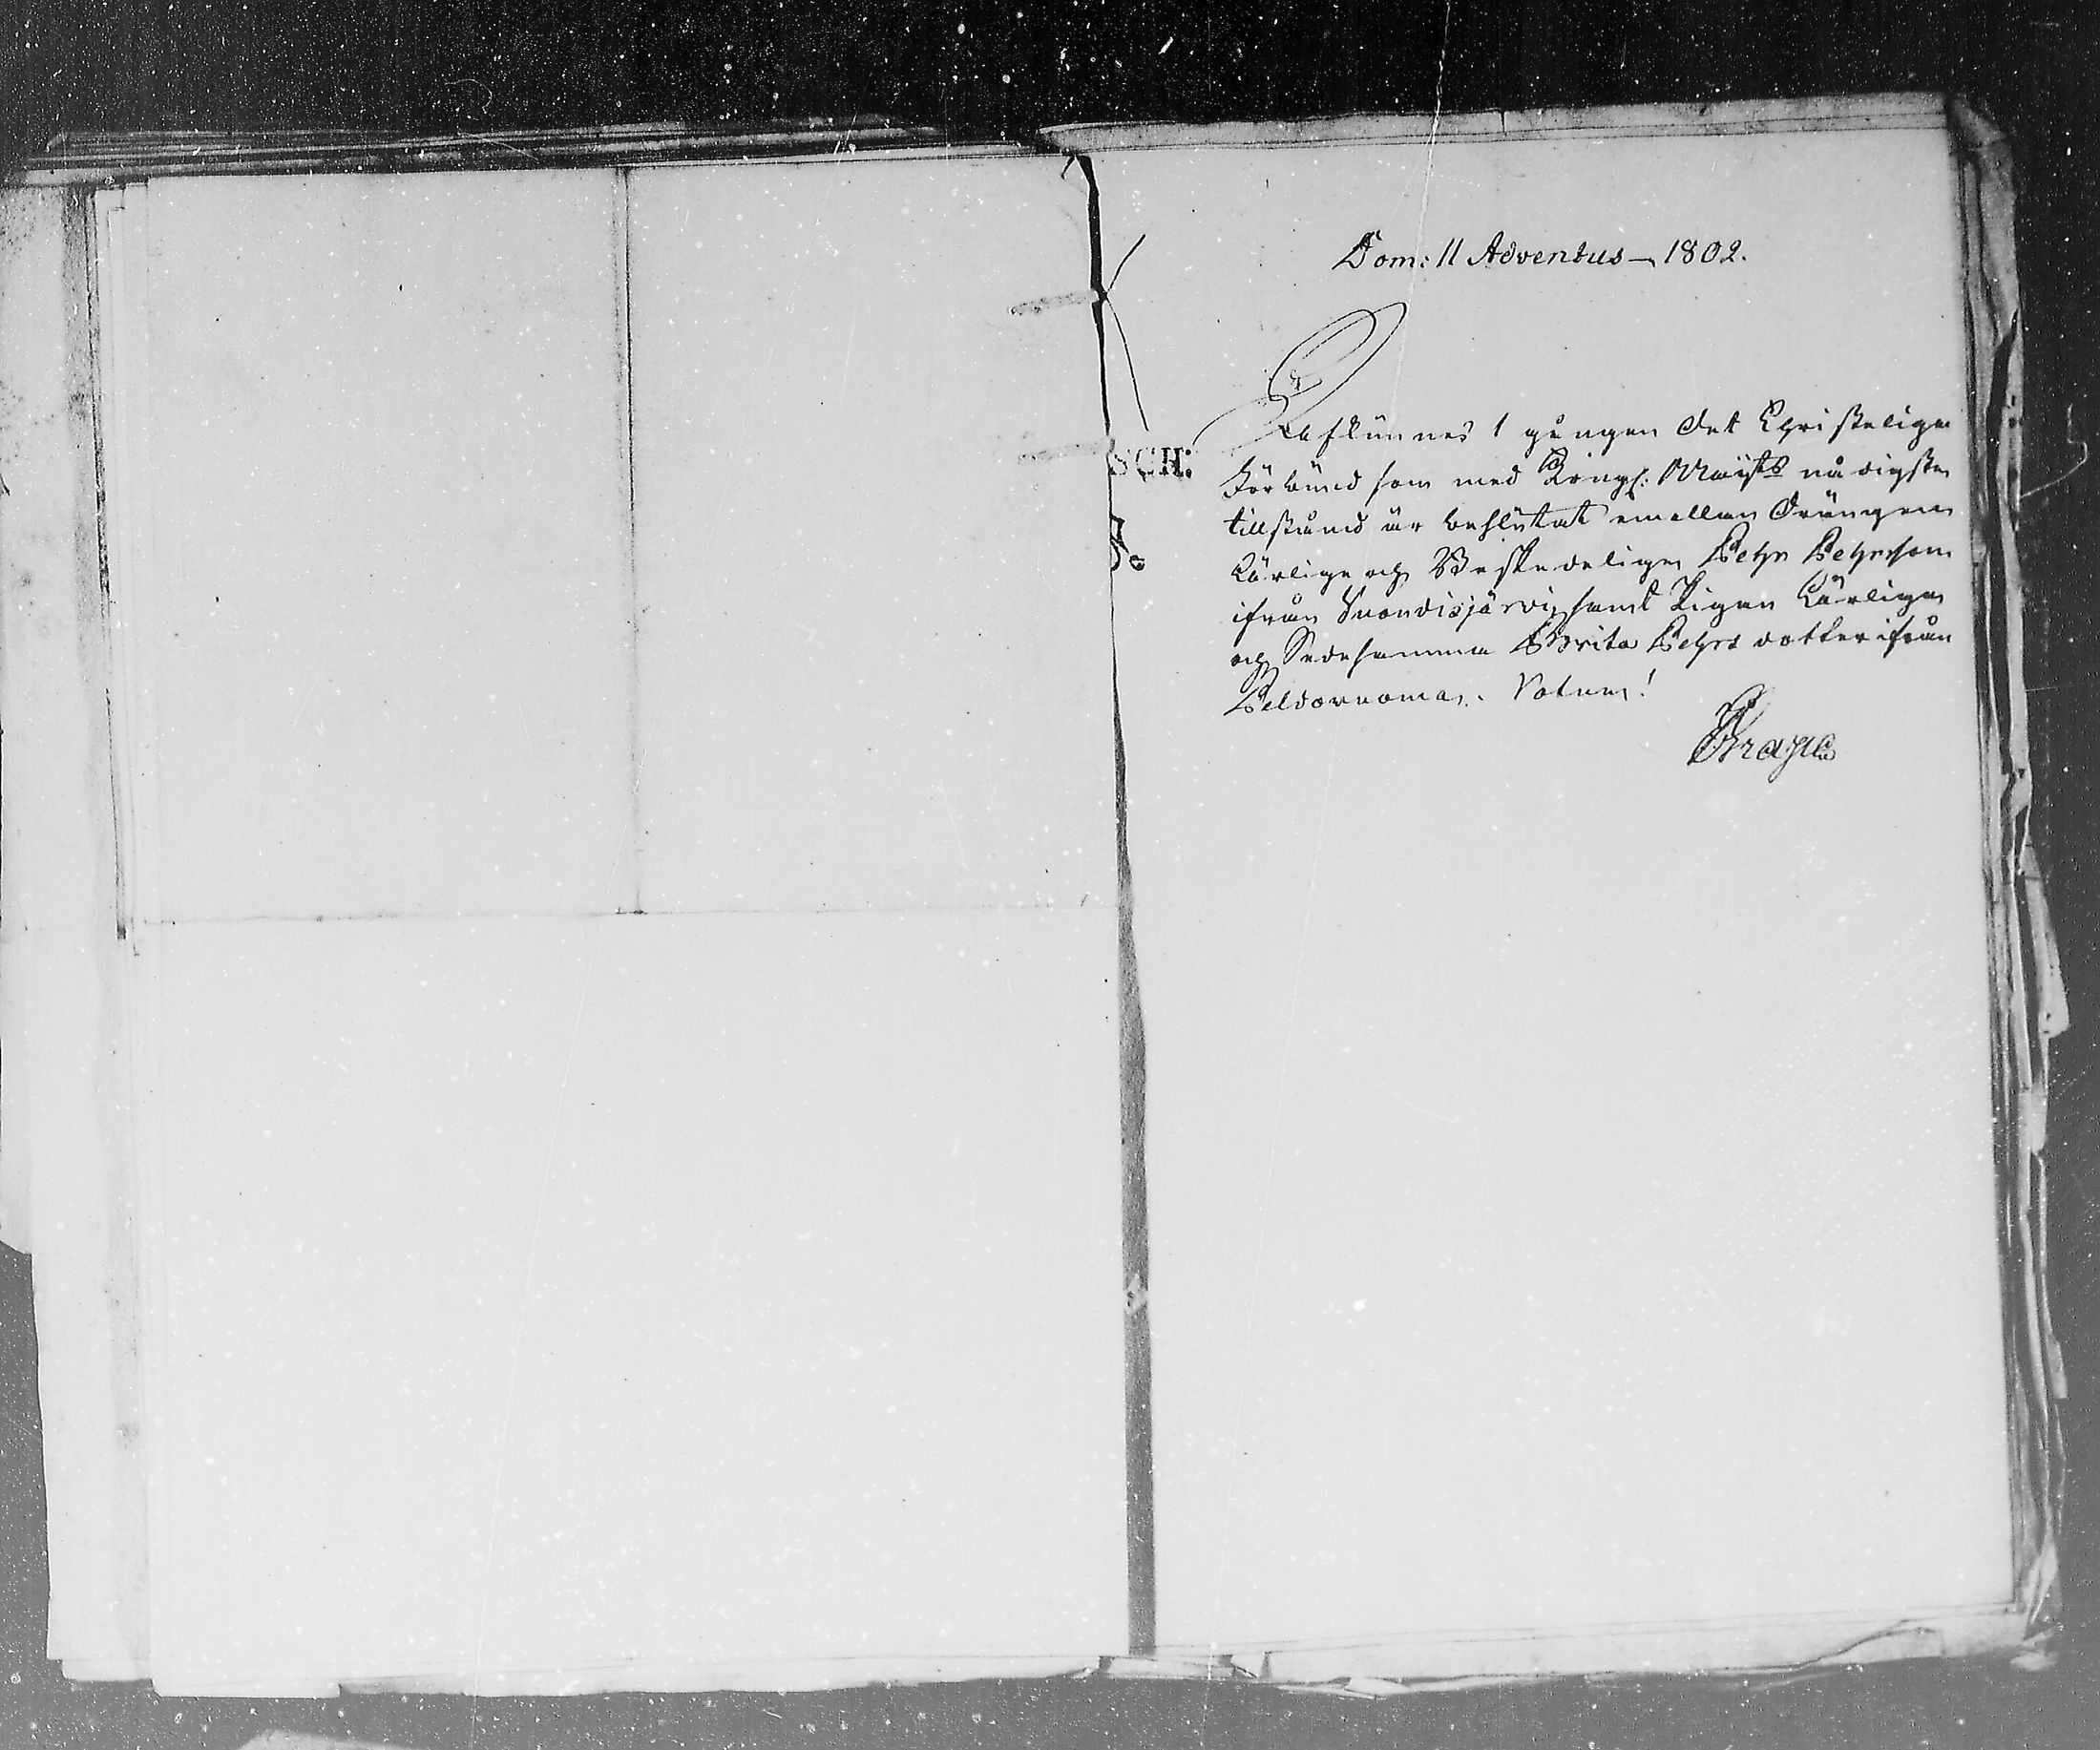 Dom: II Adventus — 1802.
Afkunnes 1 gången det Christeliga
SCH:
Förbund som med Kongl: Maijts nådigste
tillstånd är beslutat emellan Drängen
J.
Ärlige och Beskedelige Pehr Pehrsson
ifrån Suondisjärvi, samt Pigan Ärliga
och Sedesamma Brita Pehrs dotter ifrån
Peldovuoma. Votum!